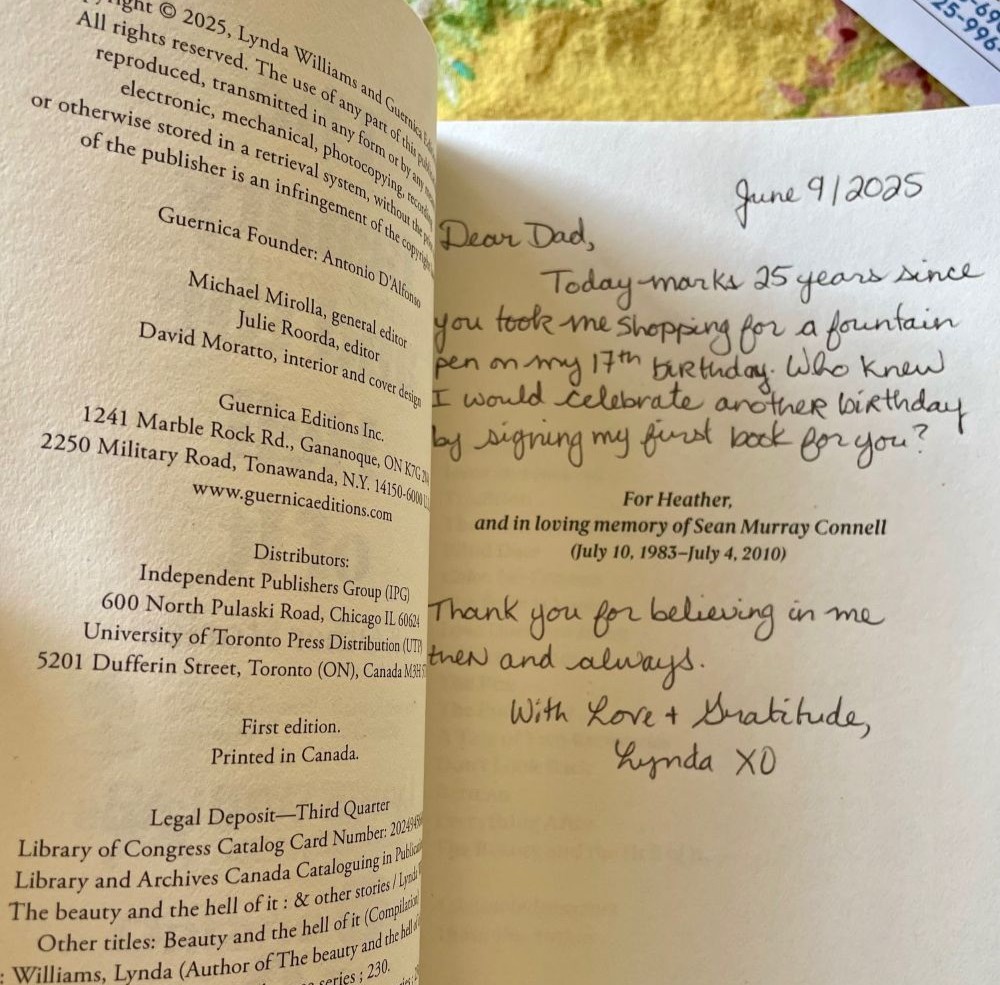 right © 2025, Lynda Williams and Guernica
All rights reserved. The use of any part of this
reproduced, transmitted in any form or by any
electronic, mechanical, photocopying,
or otherwise stored in a retrieval system, without the
of the publisher is an infringement of the copyright
Guernica Founder: Antonio D'Alfonso
Michael Mirolla, general editor
Julie Roorda, editor
David Moratto, interior and cover design
Guernica Editions Inc.
1241 Marble Rock Rd., Gananoque, ON K7G
2250 Military Road, Tonawanda, N.Y. 14150-6000
www.guernicaeditions.com
Distributors:
Independent Publishers Group (IPG)
600 North Pulaski Road, Chicago IL 60624
University of Toronto Press Distribution (UTP
5201 Dufferin Street, Toronto (ON), Canada M3H
First edition.
Printed in Canada.
Legal Deposit—Third Quarter
Library of Congress Catalog Card Number:
Library and Archives Canada Cataloguing in
The beauty and the hell of it : & other stories / Lynda
Other titles: Beauty and the hell of it (Compilation
: Williams, Lynda (Author of The beauty and the hell of
series ; 230.
June 9/2025
Dear Dad,
Today marks 25 years since
you took me shopping for a fountain
pen on my 17th birthday. Who knew
I would celebrate another birthday
by signing my first book for you?
For Heather,
and in loving memory of Sean Murray Connell
(July 10, 1983–July 4, 2010)
Thank you for believing in me
then and always.
With Love + Gratitude,
Lynda XO